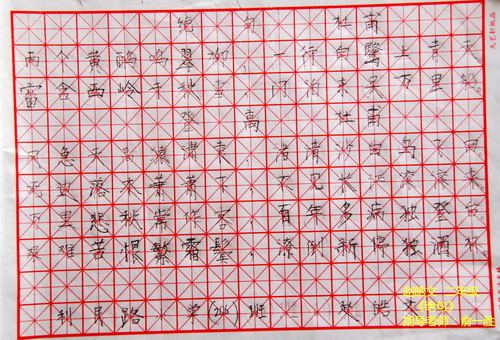 绝句 杜甫
两个黄鹂鸣翠柳,一行白鹭上青天。
窗含西岭千秋雪,门泊东吴万里船。
登高 杜甫
风急天高猿啸哀,渚清沙白鸟飞回。
无边落木萧萧下,不见长江滚滚来。
万里悲秋常作客,百年多病独登台。
艰难苦恨繁霜鬓,潦倒新停浊酒杯。
利民路 (206)班 赵皓
《绝句》
指导老师